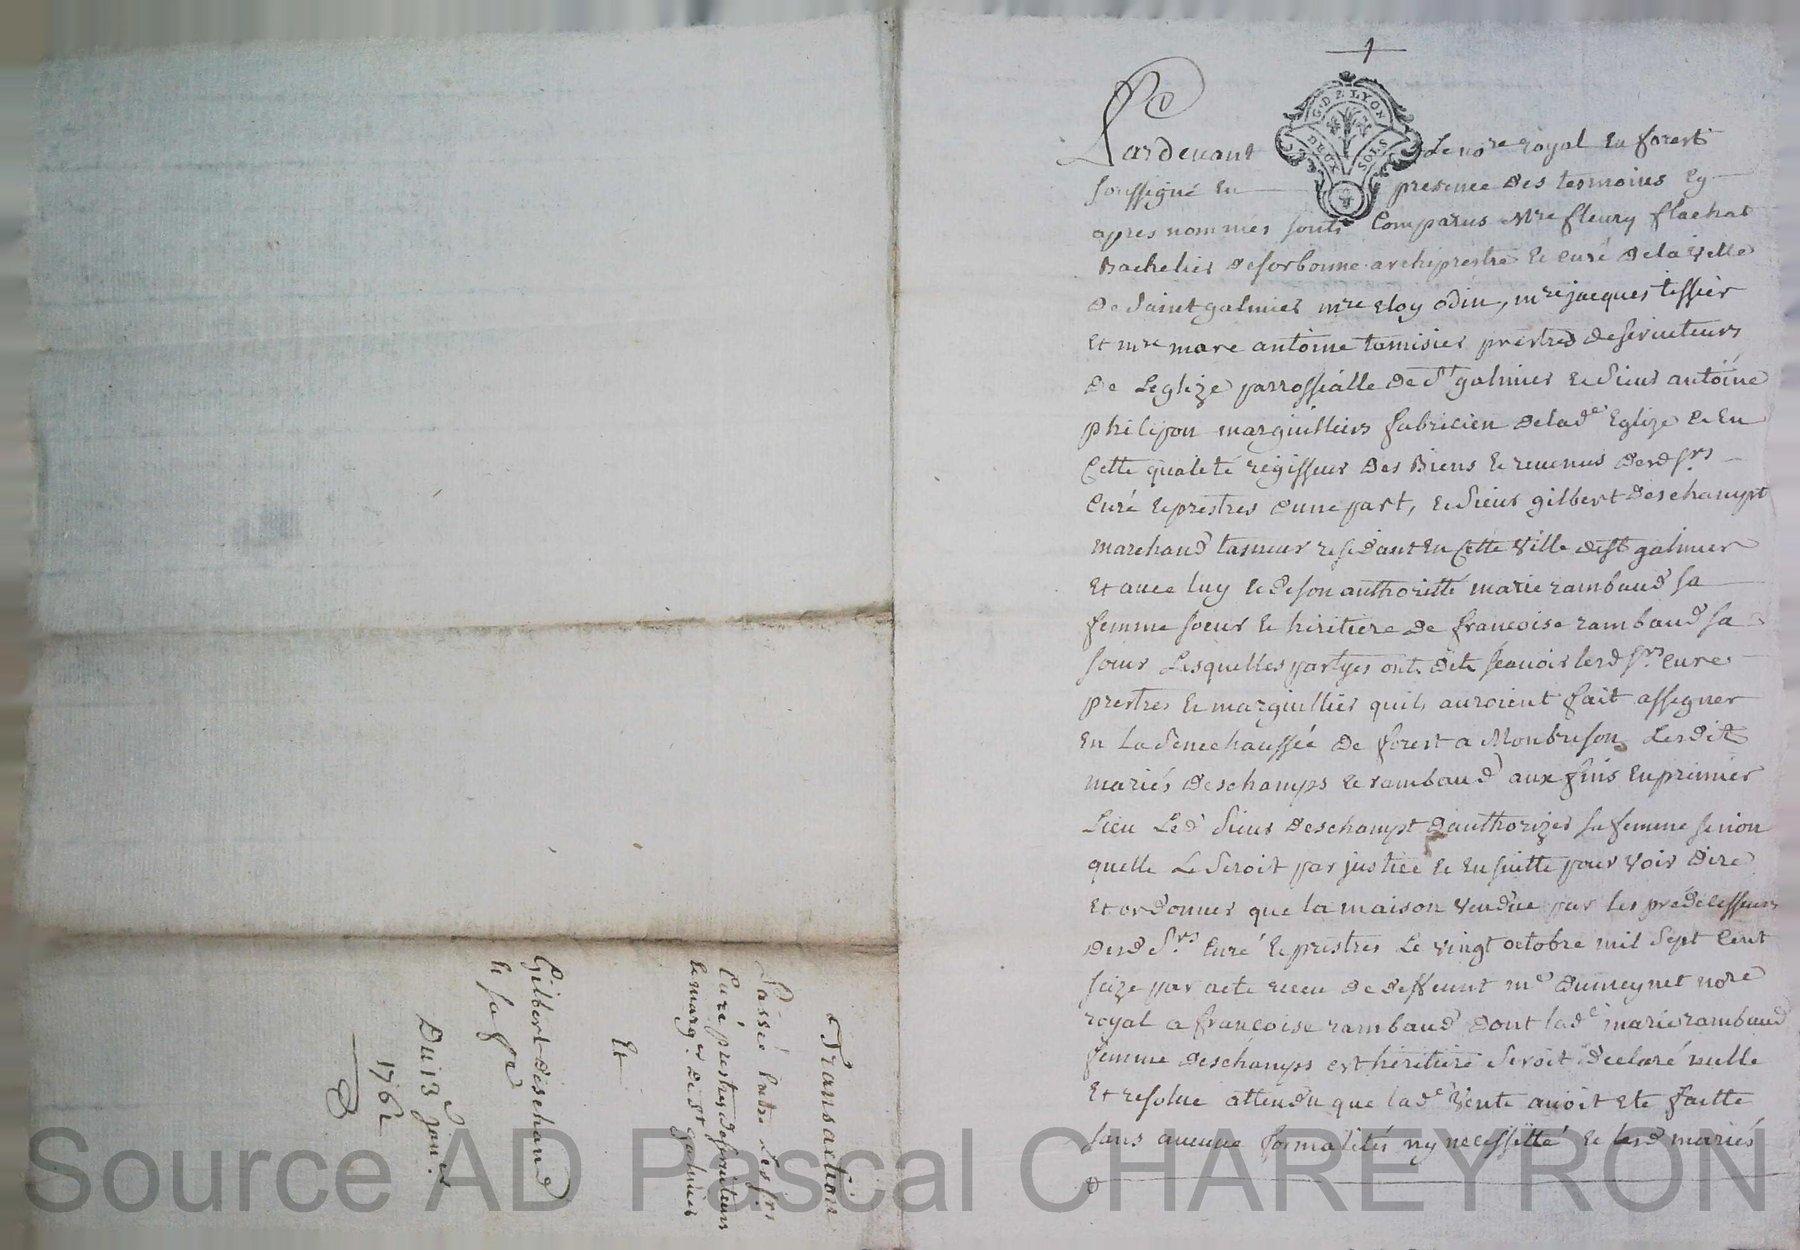 Transaction
Passée Entre les srs
Curé prestres desserviteurs
Et marger. de st galmier
Et
Gilbert deschamp
Et sa fe
Du 13e janer
1762
1
G. DE LYON
DEUX SOLS
Pardevant Le nore royal En forest
soussigné En presence des tesmoins Cy
apres nommés sonts Comparus Mre fleury flachat
Bachelier desorbonne archiprestre Et curé dela ville
De Saint galmier mre Eloy odin, mre jacques tissier
Et mre marc antoine tamisier prestres deserviteurs
De Leglize parrossialle de St galmier Et Sieur antoine
philipon marguilliers fabricien delade Eglize Et En
Cette qualité régisseur Des Biens Et revenus desd srs
Curé Et prestres dune part, Et Sieur gilbert deschampt
marchand taneur residant En Cette ville dest galmier
Et avec luy Et de son authoritté marie rambaud sa
femme soeur Et hiritiere de francoise rambaud sa
soeur Lesquelles partyes onts dit scauoir lesd srs Cure
prestres Et marguillier quils auroient fait assegner
En La Senechaussée de forest a Monbrison Lesdits
mariés deschamps Et rambaud aux fins En premier
Lieu Led Sieur deschampt dauthorizer sa femme sinon
quelle Le Seroit par justice Et Ensuitte pour voir dire
Et ordonner que la maison vendue par les prédécesseurs
desd Srs Curé Et prestres Le vingt octobre mil Sept Cent
seize par acte receu de deffeunt me dumeynet nore
royal a francoise rambaud dont lade marie rambaud
femme deschamps est héritière Seroit declaré nulle
Et resolue attendu que lade vente auoit Ete faitte
sans aucune formalités ny necessitté Et lesd mariés
Source AD Pascal CHAREYRON